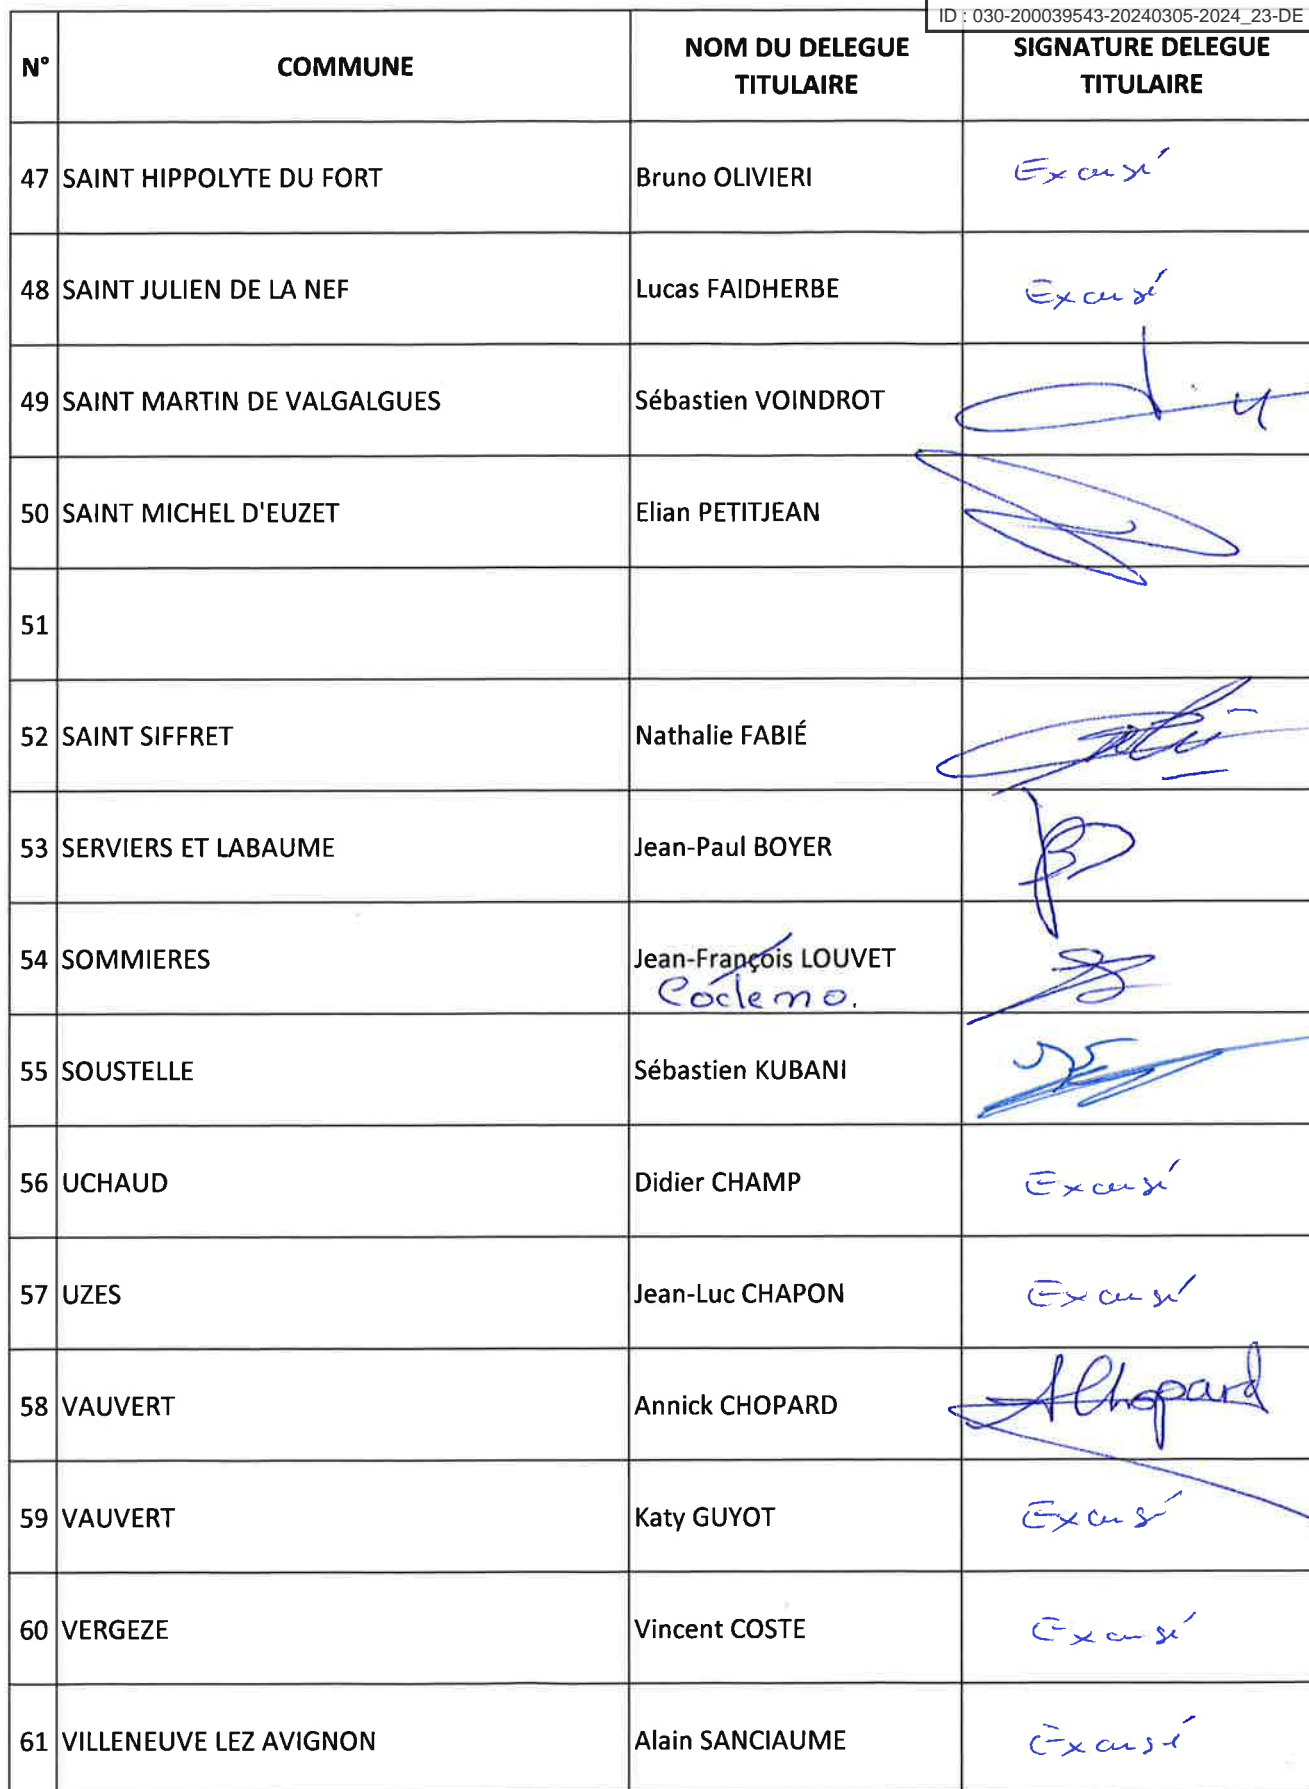 ID : 030-200039543-20240305-2024_23-DE
N° COMMUNE NOM DU DELEGUE TITULAIRE SIGNATURE DELEGUE TITULAIRE
47 SAINT HIPPOLYTE DU FORT Bruno OLIVIERI Excusé
48 SAINT JULIEN DE LA NEF Lucas FAIDHERBE Excusé
49 SAINT MARTIN DE VALGALGUES Sébastien VOINDROT
50 SAINT MICHEL D'EUZET Elian PETITJEAN
51
52 SAINT SIFFRET Nathalie FABIÉ
53 SERVIERS ET LABAUME Jean-Paul BOYER
54 SOMMIERES Jean-François LOUVET
55 SOUSTELLE Sébastien KUBANI
56 UCHAUD Didier CHAMP Excusé
57 UZES Jean-Luc CHAPON Excusé
58 VAUVERT Annick CHOPARD AChopard
59 VAUVERT Katy GUYOT Excusé
60 VERGEZE Vincent COSTE Excusé
61 VILLENEUVE LEZ AVIGNON Alain SANCIAUME Excusé